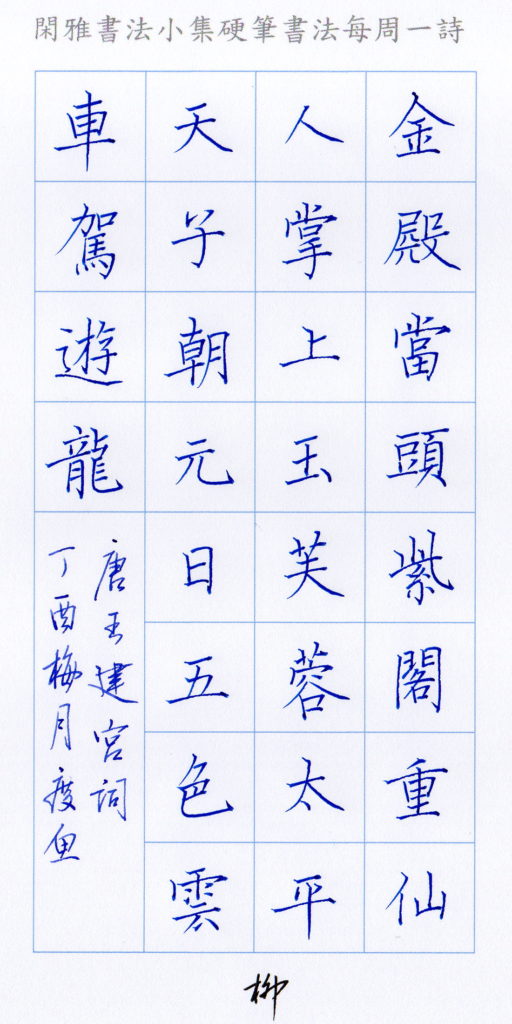 閑雅書法小集硬筆書法每周一詩
金殿當頭紫閣重仙
人掌上玉芙蓉太平
天子朝元日五色雲
車駕遊龍
唐王建宮詞
丁酉梅月度鱼
柳